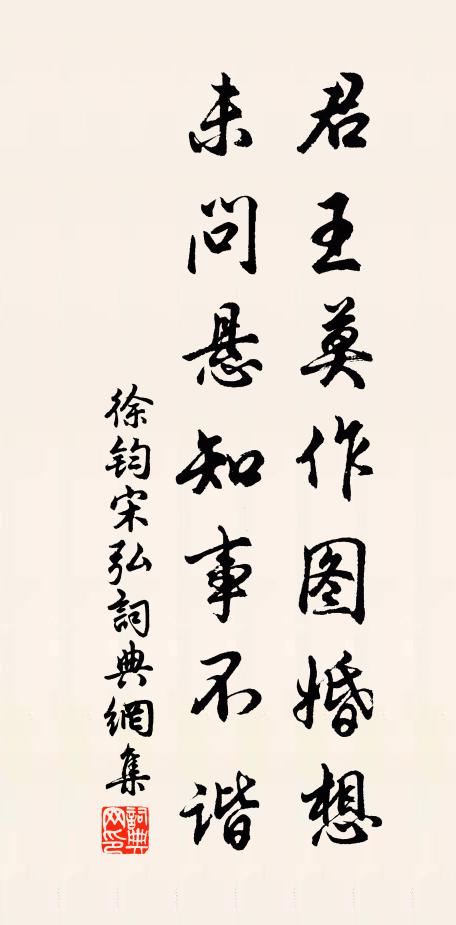 君王莫作图婚想
未问悬知事不谐
徐钧宋弘詞典網集
詞典网印